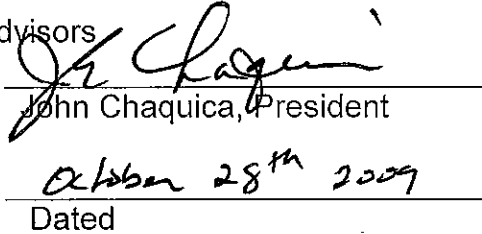 dvisors
John Chaquica, President
October 28th 2009
Dated